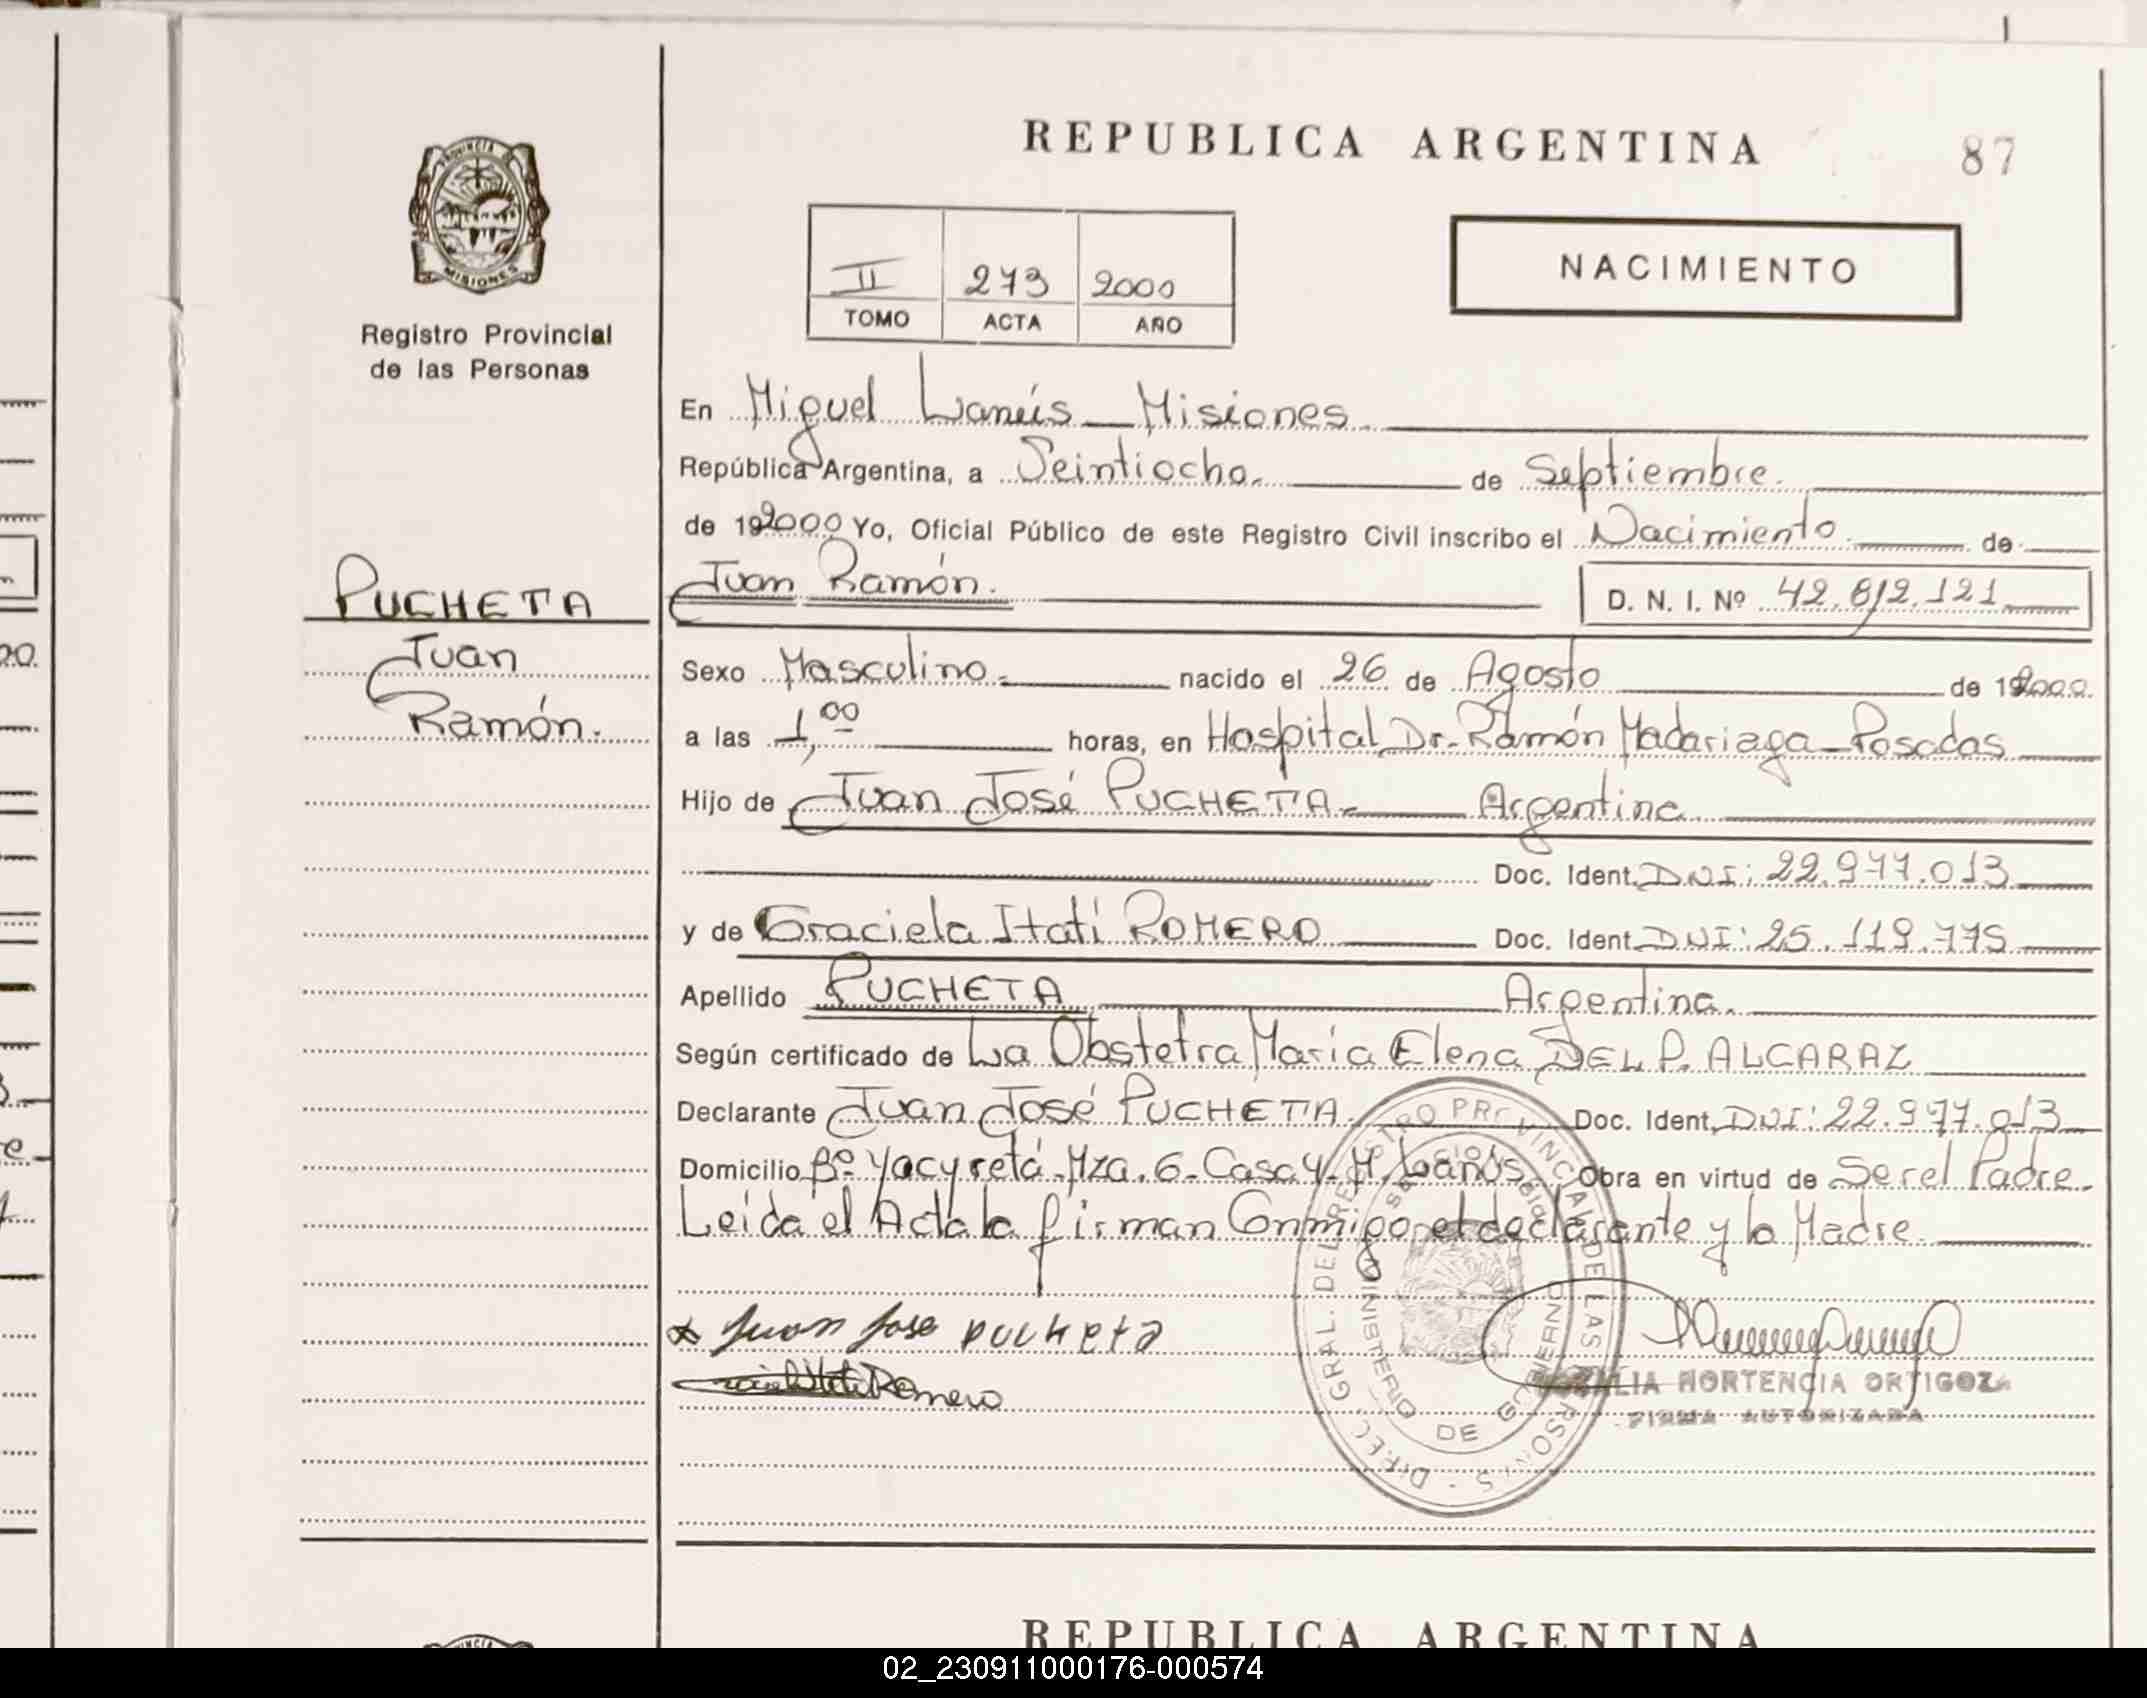 REPUBLICA ARGENTINA
87
PROVINCIA DE
MISIONES
Registro Provincial
de las Personas
II 273 2000
TOMO ACTA AÑO
NACIMIENTO
En Miguel Lanús _ Misiones.
República Argentina, a Veintiocho. de Septiembre.
de 192000 Yo, Oficial Público de este Registro Civil inscribo el Nacimiento. de
PUCHETA
Juan
Ramón.
Juan Ramón.
D. N. I. Nº 42.812.121
Sexo Masculino. nacido el 26 de Agosto de 192000.
a las 1,00 horas, en Hospital Dr. Ramón Madariaga _ Posadas
Hijo de Juan José PUCHETA. Argentina
Doc. Ident. DNI: 22.977.013
y de Graciela Itatí ROMERO Doc. Ident. DNI: 25.119.775
Apellido PUCHETA Argentina.
Según certificado de La Obstetra María Elena DEL P. ALCARAZ
Declarante Juan José PUCHETA. Doc. Ident. DNI: 22.977.013
Domicilio Bº Yacyretá - Mza. 6 - Casa 4 - M. Lanús. Obra en virtud de Ser el Padre.
Leída el Acta la firman Conmigo el declarante y la Madre.
Juan Jose PUCHETA
Romero
DIREC. GRAL. DEL REGISTRO PROVINCIAL DE LAS PERSONAS
MINISTERIO DE GOBIERNO
HORTENCIA ORTIGOZA
FIRMA AUTORIZADA
REPUBLICA ARGENTINA
02_230911000176-000574